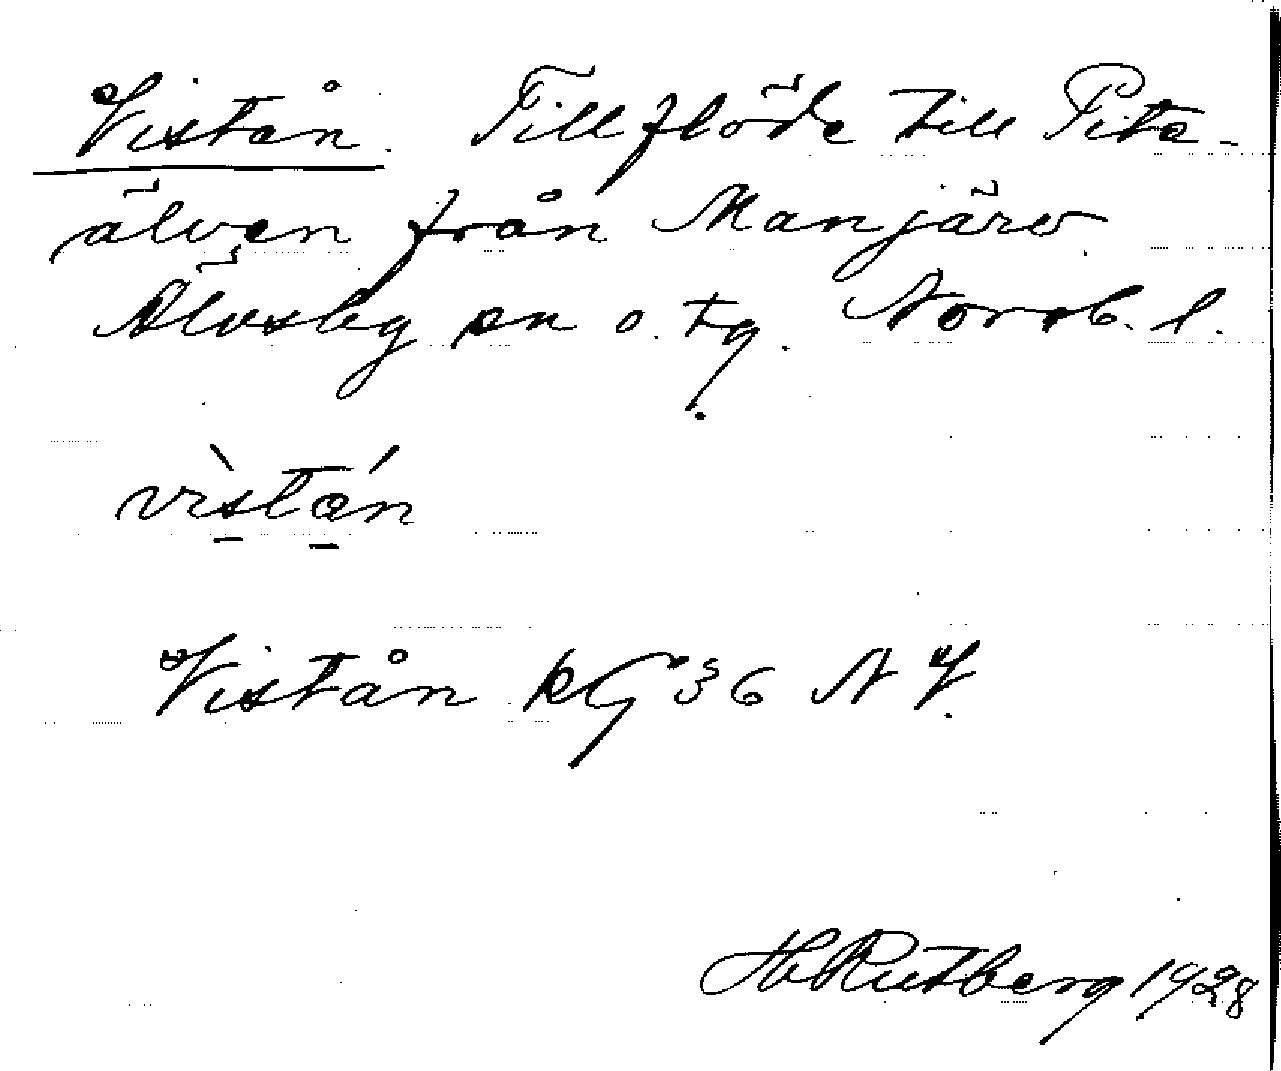 Vistån. Tillflöde till Pite-
älven från Manjärv
Älvsby sn o. tg. Norrb. l.
vìstá̱n
Vistån kG 36 N V.
H. Rutberg 1928